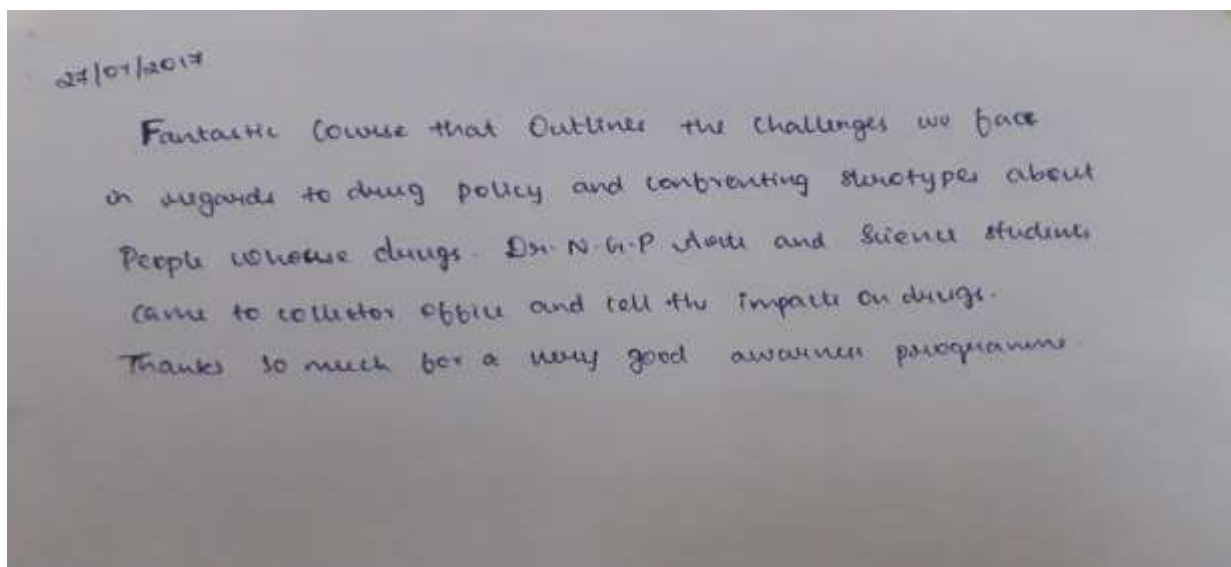 27/07/2017
Fantastic Course that Outlines the Challenges we face
in regards to drug policy and confronting sterotypes about
People whouse drugs. Dr. N.G.P Arts and Science students
came to collector office and tell the impacts on drugs.
Thanks so much for a very good awarness programme.